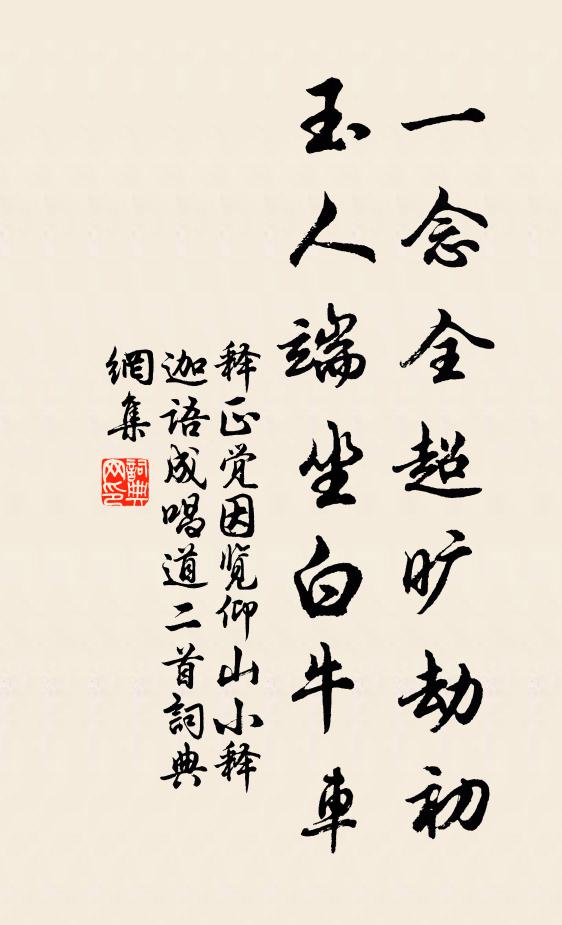 一念全超旷劫初
玉人端坐白牛車
释正觉因览仰山小释
迦语成唱道二首詞典
網集
詞典
网印